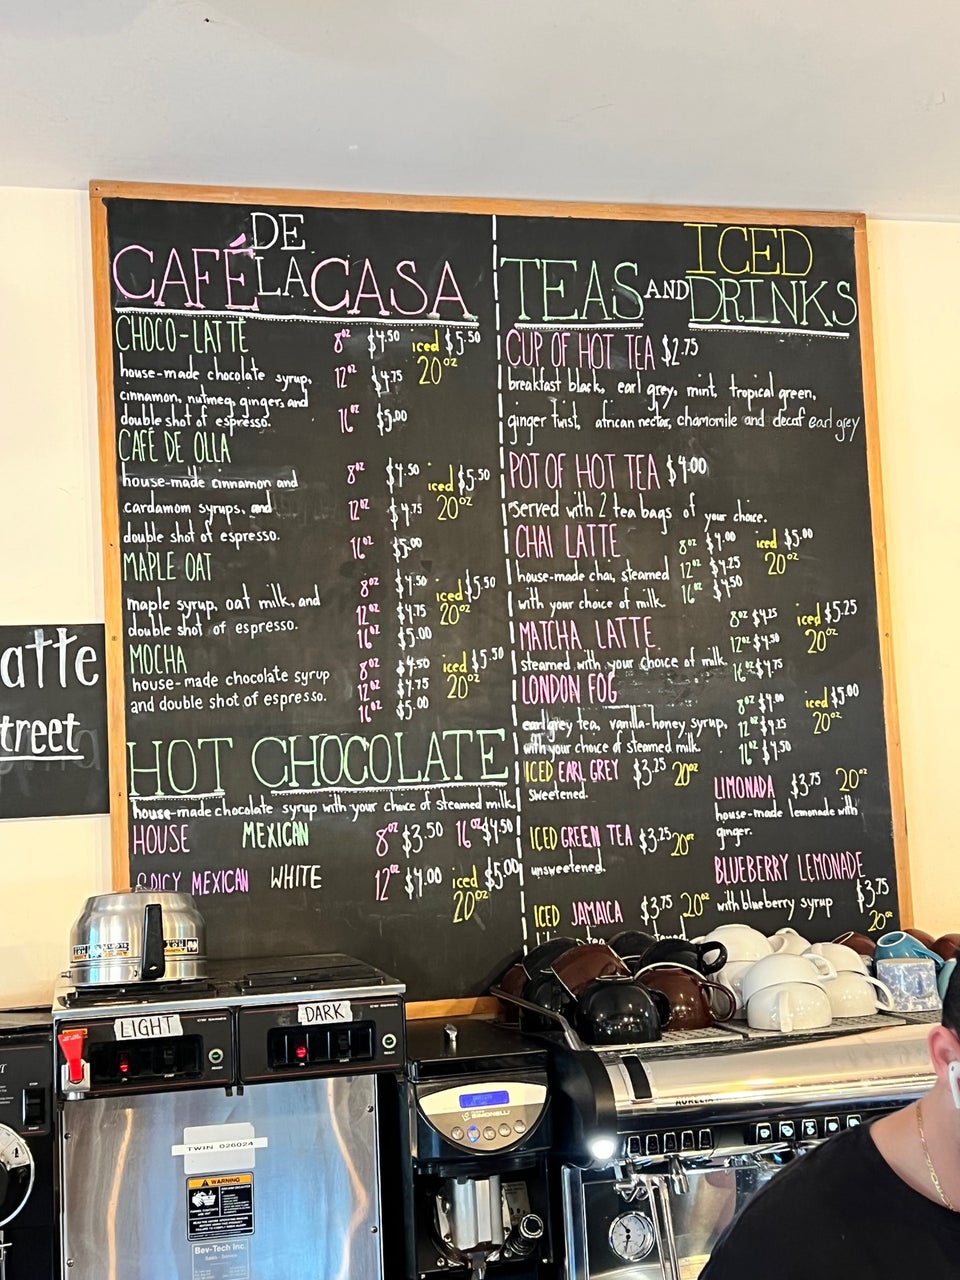 CAFÉ DE LA CASA
CHOCO-LATTE 8oz $4.50 iced $5.50
house-made chocolate syrup, 12oz $4.75 20oz
cinnamon, nutmeg, ginger, and
double shot of espresso. 16oz $5.00
CAFÉ DE OLLA
house-made cinnamon and 8oz $4.50 iced $5.50
cardamom syrups, and 12oz $4.75 20oz
double shot of espresso. 16oz $5.00
MAPLE OAT
maple syrup, oat milk, and 8oz $4.50 iced $5.50
double shot of espresso. 12oz $4.75 20oz
16oz $5.00
MOCHA 8oz $4.50 iced $5.50
house-made chocolate syrup 12oz $4.75 20oz
and double shot of espresso. 16oz $5.00
HOT CHOCOLATE
house-made chocolate syrup with your choice of steamed milk.
HOUSE MEXICAN 8oz $3.50 16oz $4.50
SPICY MEXICAN WHITE 12oz $4.00 iced $5.00
20oz
TEAS AND ICED DRINKS
CUP OF HOT TEA $2.75
breakfast black, earl grey, mint, tropical green,
ginger twist, african nectar, chamomile and decaf earl grey
POT OF HOT TEA $4.00
served with 2 tea bags of your choice.
CHAI LATTE 8oz $4.00 iced $5.00
house-made chai, steamed 12oz $4.25 20oz
with your choice of milk. 16oz $4.50
MATCHA LATTE 8oz $4.25 iced $5.25
12oz $4.50 20oz
steamed with your choice of milk. 16oz $4.75
LONDON FOG 8oz $4.00 iced $5.00
earl grey tea, vanilla-honey syrup, 12oz $4.25 20oz
with your choice of steamed milk. 16oz $4.50
ICED EARL GREY $3.25 20oz
sweetened.
ICED GREEN TEA $3.25 20oz
unsweetened.
ICED JAMAICA $3.75 20oz
tea
LIMONADA $3.75 20oz
house-made lemonade with
ginger.
BLUEBERRY LEMONADE
with blueberry syrup $3.75
20oz
atte
treet
LIGHT
DARK
TWIN 026024
WARNING
Bev-Tech Inc.
Sales - Service
SIMONELLI
AURELIA